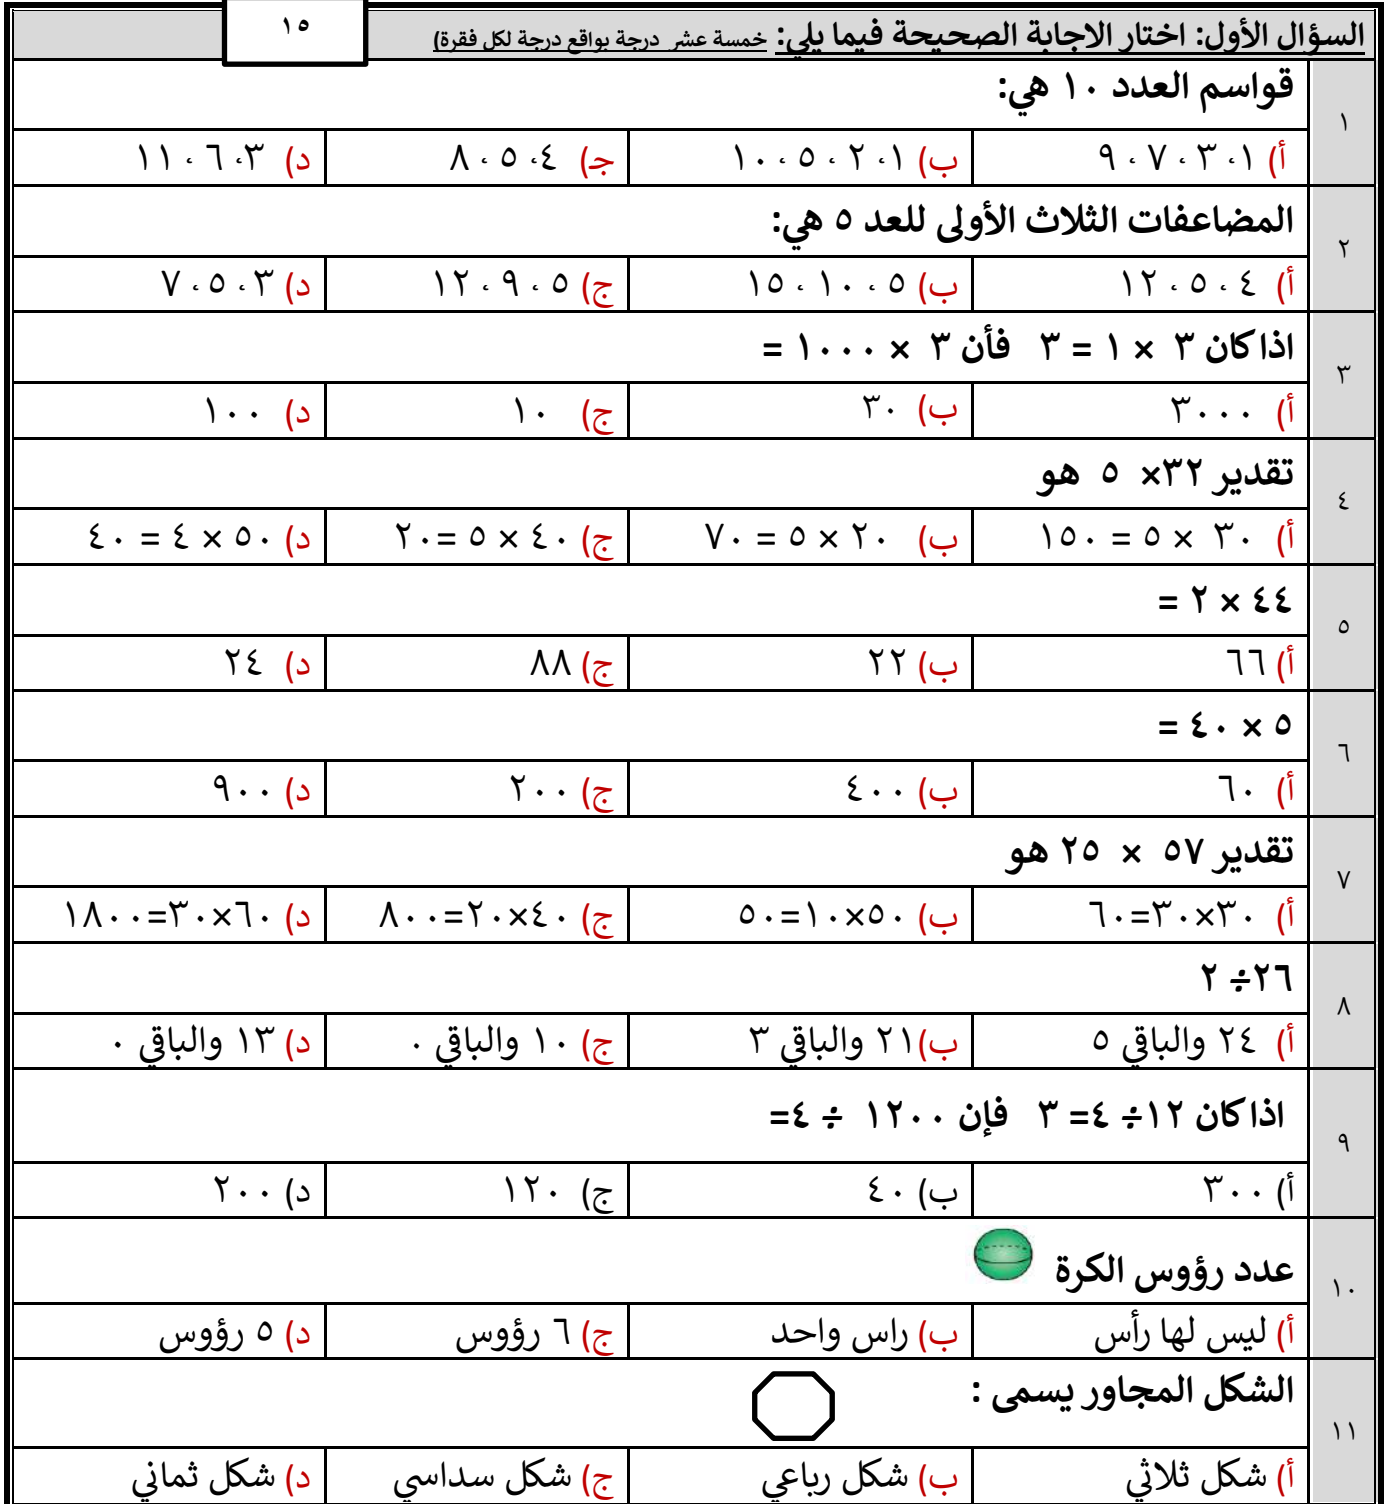 السؤال الأول: اختار الاجابة الصحيحة فيما يلي: خمسة عشر درجة بواقع درجة لكل فقرة)
١٥
١
قواسم العدد ١٠ هي:
أ) ١، ٣ ، ٧ ، ٩
ب) ١، ٢ ، ٥ ، ١٠
جـ) ٤، ٥ ، ٨
د) ٣، ٦ ، ١١
٢
المضاعفات الثلاث الأولى للعد ٥ هي:
أ) ٤ ، ٥ ، ١٢
ب) ٥ ، ١٠ ، ١٥
ج) ٥ ، ٩ ، ١٢
د) ٣ ، ٥ ، ٧
٣
اذا كان ٣ × ١ = ٣ فأن ٣ × ١٠٠٠ =
أ) ٣٠٠٠
ب) ٣٠
ج) ١٠
د) ١٠٠
٤
تقدير ٣٢× ٥ هو
أ) ٣٠ × ٥ = ١٥٠
ب) ٢٠ × ٥ = ٧٠
ج) ٤٠ × ٥ =٢٠
د) ٥٠ × ٤ = ٤٠
٥
٤٤ × ٢ =
أ) ٦٦
ب) ٢٢
ج) ٨٨
د) ٢٤
٦
٥ × ٤٠ =
أ) ٦٠
ب) ٤٠٠
ج) ٢٠٠
د) ٩٠٠
٧
تقدير ٥٧ × ٢٥ هو
أ) ٣٠×٣٠=٦٠
ب) ٥٠×١٠=٥٠
ج) ٤٠×٢٠=٨٠٠
د) ٦٠×٣٠=١٨٠٠
٨
٢٦÷ ٢
أ) ٢٤ والباقي ٥
ب)٢١ والباقي ٣
ج) ١٠ والباقي ٠
د) ١٣ والباقي ٠
٩
اذا كان ١٢÷ ٤= ٣ فإن ١٢٠٠ ÷ ٤=
أ) ٣٠٠
ب) ٤٠
ج) ١٢٠
د) ٢٠٠
١٠
عدد رؤوس الكرة
أ) ليس لها رأس
ب) راس واحد
ج) ٦ رؤوس
د) ٥ رؤوس
١١
الشكل المجاور يسمى :
أ) شكل ثلاثي
ب) شكل رباعي
ج) شكل سداسي
د) شكل ثماني